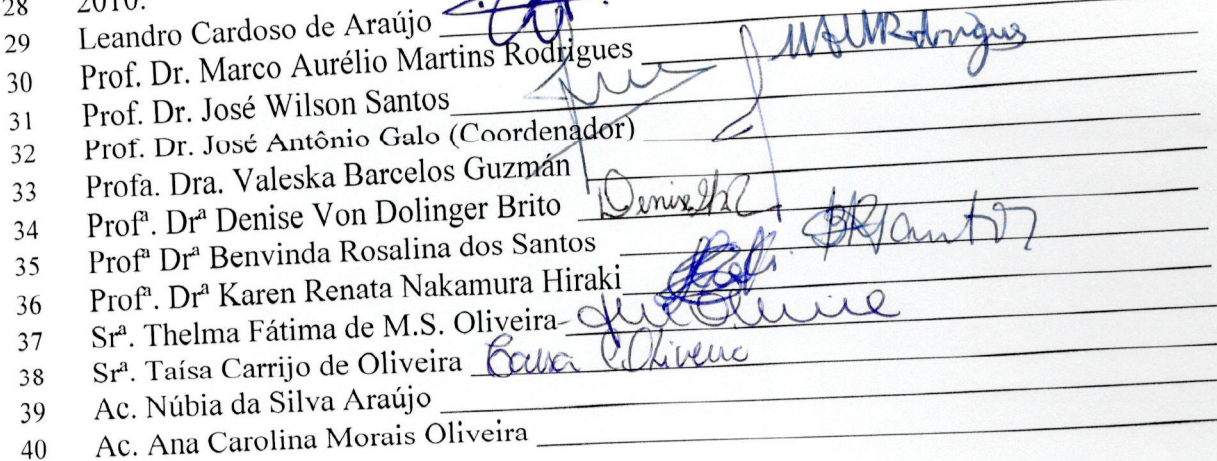 28 2010.
29 Leandro Cardoso de Araújo
30 Prof. Dr. Marco Aurélio Martins Rodrigues MAMRodrigues
31 Prof. Dr. José Wilson Santos
32 Prof. Dr. José Antônio Galo (Coordenador)
33 Profa. Dra. Valeska Barcelos Guzmán
34 Profª. Drª Denise Von Dolinger Brito Denise
35 Profª Drª Benvinda Rosalina dos Santos BRSantos
36 Profª. Drª Karen Renata Nakamura Hiraki
37 Srª. Thelma Fátima de M.S. Oliveira
38 Srª. Taísa Carrijo de Oliveira Taísa C. Oliveira
39 Ac. Núbia da Silva Araújo
40 Ac. Ana Carolina Morais Oliveira